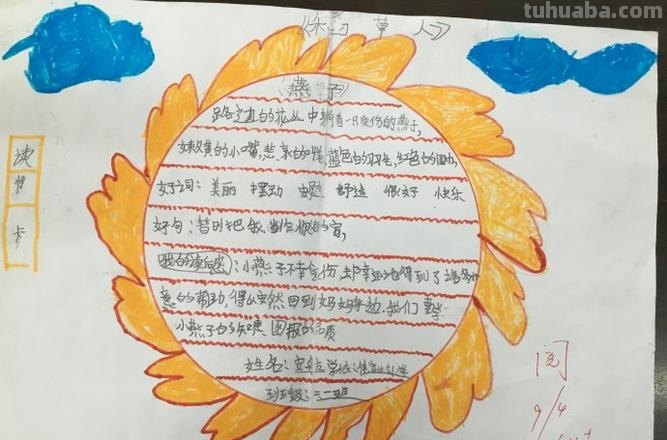 tuhuaba.com
《稻草人》
《燕子》
路旁边的花丛中躺着一只受伤的燕子,
嫩黄的小嘴,悲哀的神情,蓝色的羽毛,红色的
好词: 美丽 摆动 舒适 很好 快乐
好句: 暂时把我当作你的窝,
我的读后感: 小燕子不幸受伤, 却幸运地得到了
的帮助, 得以回到妈妈身边, 我们要学
小燕子的知恩图报的品质
姓名: 学校: 小学
班级: 三二班
读书卡
阅
9/4